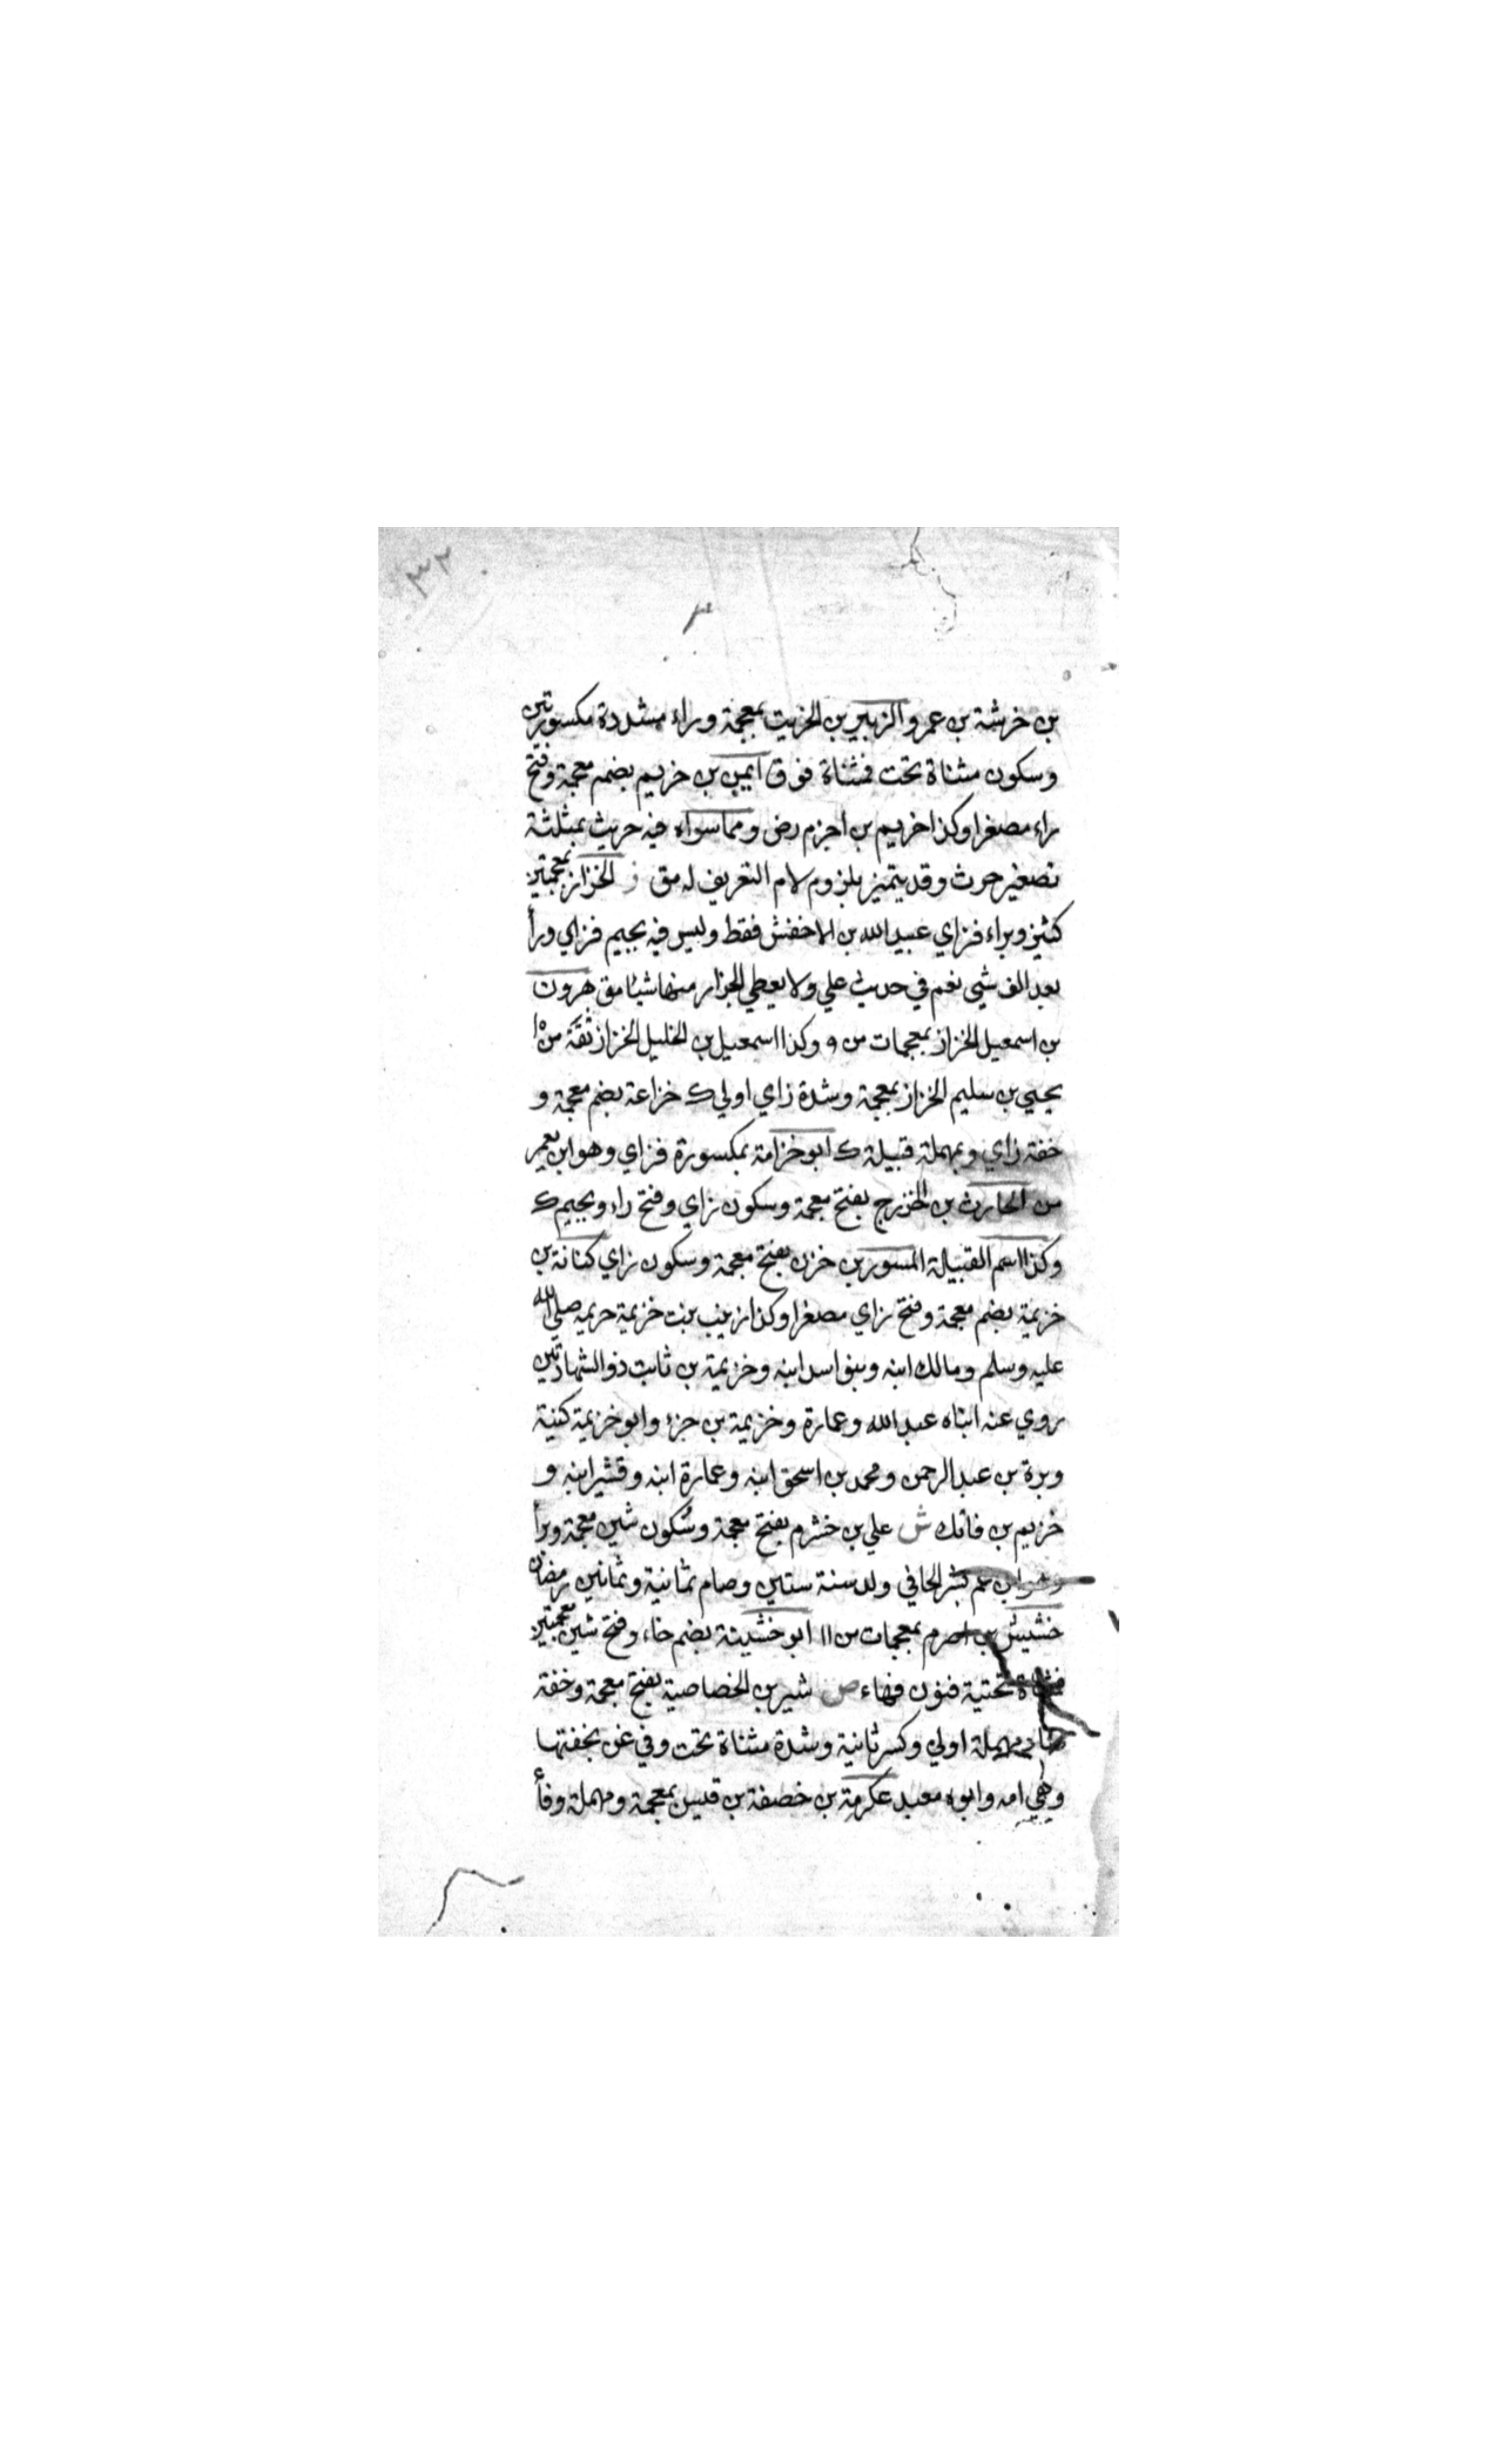 ٣٢
بن خرشة بن عمرو الزبير بن الخريت بمعجمة وراء مشددة مكسورتين
وسكون مثناة تحت فمثناة فوق ايمن بن خريم بضم معجمة وفتح
راء مصغرا وكذا خريم بن اخرم رض ومما سواه فيه حريث بمثلثة
تصغير حرث وقد يتميز بلزوم لام التعريف له مق ز الخزاز بمعجمتين
كثير وبراء فزاي عبيد الله بن الاخفش فقط وليس فيه بجيم فزاي ورأ
بعد الف شي نعم في حديث علي ولا يعطي الجزار منها شيئا مق هرون
بن اسمعيل الخزاز بمعجمات من ٩ وكذا اسمعيل بن الخليل الخزاز ثقة من ١٠
يحيي بن سليم الخزاز بمعجمة وشدة زاي اولي ك خزاعة بضم معجمة و
خفة زاي وبمهملة قبيلة ك ابو خزامة بمكسورة فزاي وهو ابن يعمر
من الحارث بن الخزرج بفتح معجمة وسكون زاي وفتح راء وبجيم ك
وكذا اسم القبيلة المسور بن خزن بفتح معجمة وسكون زاي كنانة بن
خزيمة بضم معجمة وفتح زاي مصغرا وكذا زينب بنت خزيمة حريمه صلي الله
عليه وسلم ومالك ابنه وبنو اسد ابنه وخزيمة بن ثابت ذو الشهادتين
روي عنه ابناه عبد الله وعمارة وخزيمة بن جزء وابو خزيمة كنية
وبرة بن عبد الرحمن ومحمد بن اسحق ابنه وعمارة ابنه وقشير ابنه و
خزيم بن فاتك ش علي بن خشرم بفتح معجمة وسكون شين معجمة وبرأ
وهو ابن عم بشر الحافي ولد سنة ستين وصام ثمانية وثمانين رمضان
خشيش بن اصرم بمعجمات من ١١ ابو خشينة بضم خاء وفتح شين معجمتين
فمثناة تحتية فنون فهاء ص شير بن الخصاصية بفتح معجمة وخفة
صاد مهملة اولي وكسر ثانية وشدة مثناة تحت وفي غن بخفتها
وهي امه وابوه معبد عكرمة بن خصفة بن قيس بمعجمة ومهملة وفأ